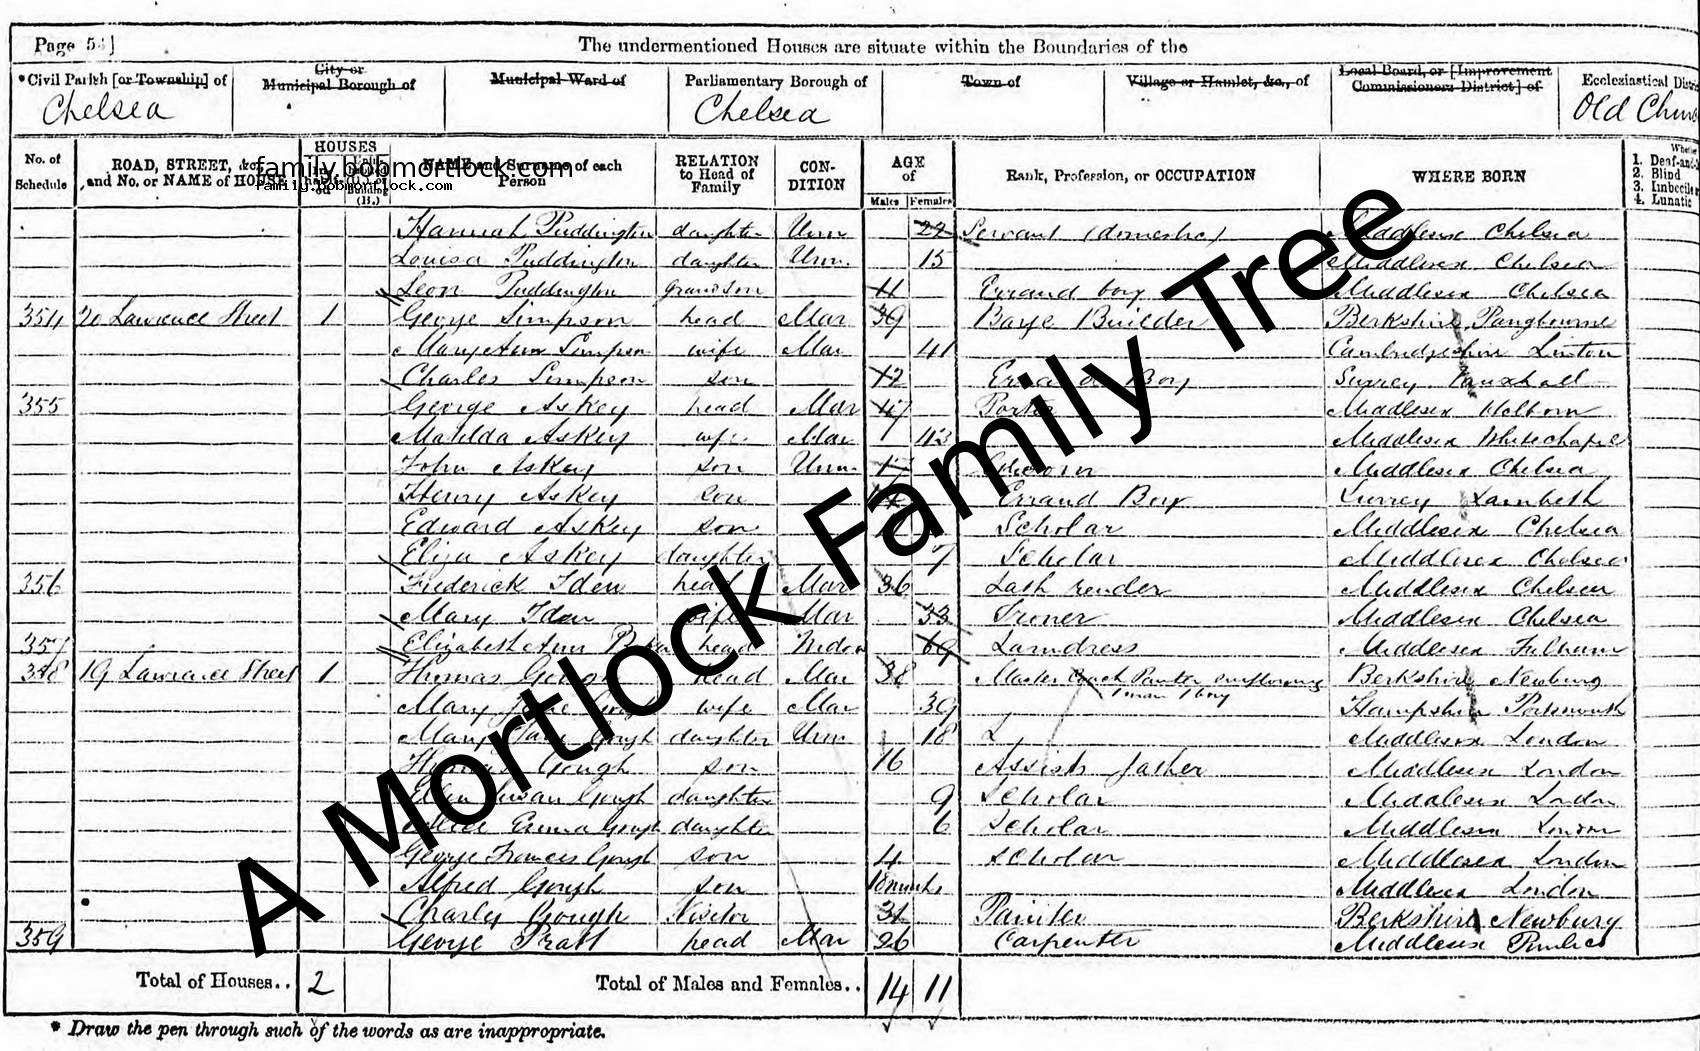 Page 53]
The undermentioned Houses are situate within the Boundaries of the
*Civil Parish [or Township] of
City or Municipal Borough of
Municipal Ward of
Parliamentary Borough of
Town of
Village or Hamlet, &c., of
Local Board, or [Improvement Commissioners District] of
Ecclesiastical Distri
Chelsea
Chelsea
Old Church
No. of Schedule
ROAD, STREET, &c., and No. or NAME of HOUSE
HOUSES
(B.)
NAME and Surname of each Person
RELATION to Head of Family
CONDITION
AGE of
Males
Females
Rank, Profession, or OCCUPATION
WHERE BORN
Whether
1. Deaf-and-
2. Blind
3. Imbecile
4. Lunatic
family.bobmortlock.com
family.bobmortlock.com
Hannah Puddington daughter Unm 22 Servant (domestic) Middlesex Chelsea
Louisa Puddington daughter Unm. 15 Middlesex Chelsea
Leon Puddington Grandson 11 Errand boy Middlesex Chelsea
354 20 Lawrence Street 1 George Simpson head Mar 39 Builder Berkshire Pangbourne
Mary Ann Simpson wife Mar 41 Cambridgeshire Linton
Charles Simpson son 12 Boy Surrey Vauxhall
355 George Askey head Mar 47 Porter Middlesex Holborn
Matilda Askey wife Mar 43 Middlesex Whitechapel
John Askey son Unm 17 Middlesex Chelsea
Henry Askey son Errand Boy Surrey Lambeth
Edward Askey son Scholar Middlesex Chelsea
Eliza Askey daughter 7 Scholar Middlesex Chelsea
356 Frederick Iden head Mar 36 Lath render Middlesex Chelsea
Mary Iden wife Mar 33 Ironer Middlesex Chelsea
357 Elizabeth Ann head Widow 69 Laundress Middlesex Fulham
358 19 Lawrence Street 1 Thomas Gough head Mar 38 Master Coach Painter employing 1 man 1 boy Berkshire Newbury
Mary Jane Gough wife Mar 39 Hampshire Portsmouth
Mary Jane Gough daughter Unm 18 Middlesex London
Thomas Gough son 16 Assists father Middlesex London
Ellen Susan Gough daughter 9 Scholar Middlesex London
Alice Emma Gough daughter 6 Scholar Middlesex London
George Francis Gough son 4 Scholar Middlesex London
Alfred Gough son 10 months Middlesex London
Charley Gough Visitor 31 Painter Berkshire Newbury
359 George Pratt head Mar 26 Carpenter Middlesex Pimlico
Total of Houses.. 2 Total of Males and Females.. 14 11
* Draw the pen through such of the words as are inappropriate.
A Mortlock Family Tree